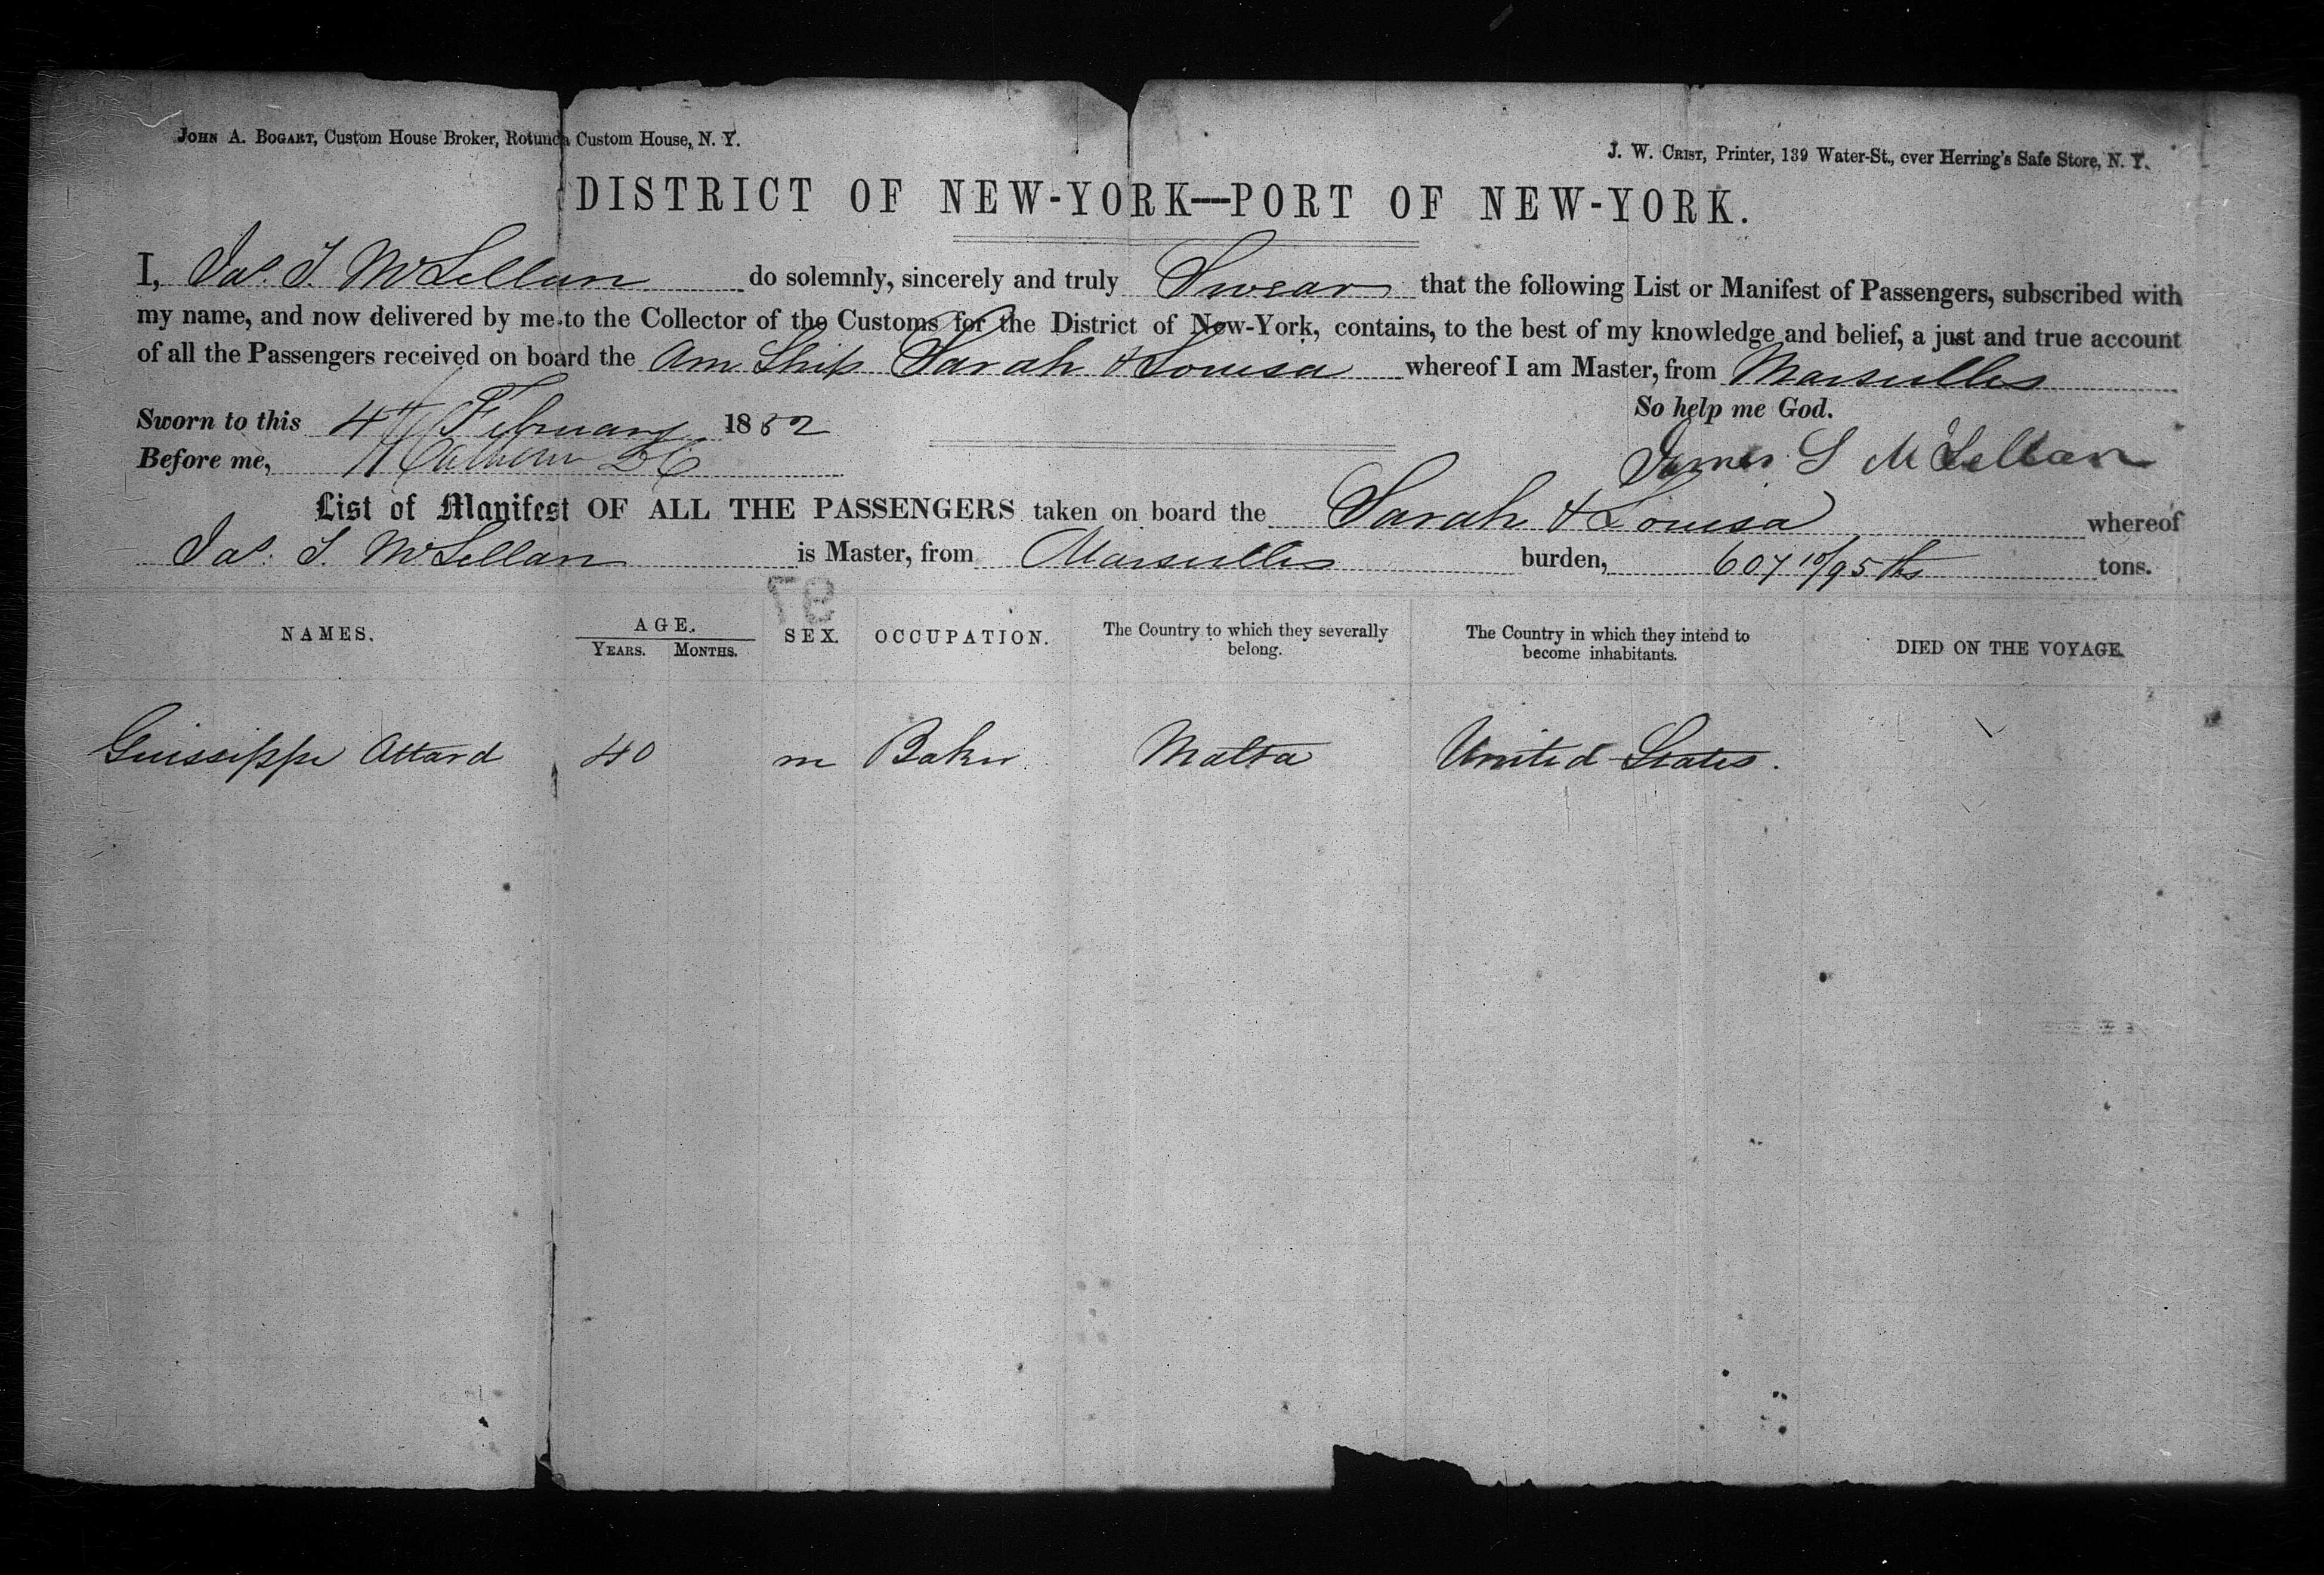 JOHN A. BOGART, Custom House Broker, Rotunda Custom House, N. Y.
J. W. CRIST, Printer, 139 Water-St., over Herring's Safe Store, N. Y.
DISTRICT OF NEW-YORK—PORT OF NEW-YORK.
I, Jas. S. McLellan do solemnly, sincerely and truly Swear that the following List or Manifest of Passengers, subscribed with
my name, and now delivered by me to the Collector of the Customs for the District of New-York, contains, to the best of my knowledge and belief, a just and true account
of all the Passengers received on board the Am Ship Sarah & Louisa whereof I am Master, from Marseilles
So help me God.
Sworn to this 4th February 1852
Before me,
James S McLellan
List of Manifest OF ALL THE PASSENGERS taken on board the Sarah & Louisa whereof
Jas. S. McLellan is Master, from Marseilles burden, 607 10/95ths tons.
97
NAMES. AGE. SEX. OCCUPATION. The Country to which they severally belong. The Country in which they intend to become inhabitants. DIED ON THE VOYAGE.
YEARS. MONTHS.
Guissippe Attard 40 m Baker Malta United States.